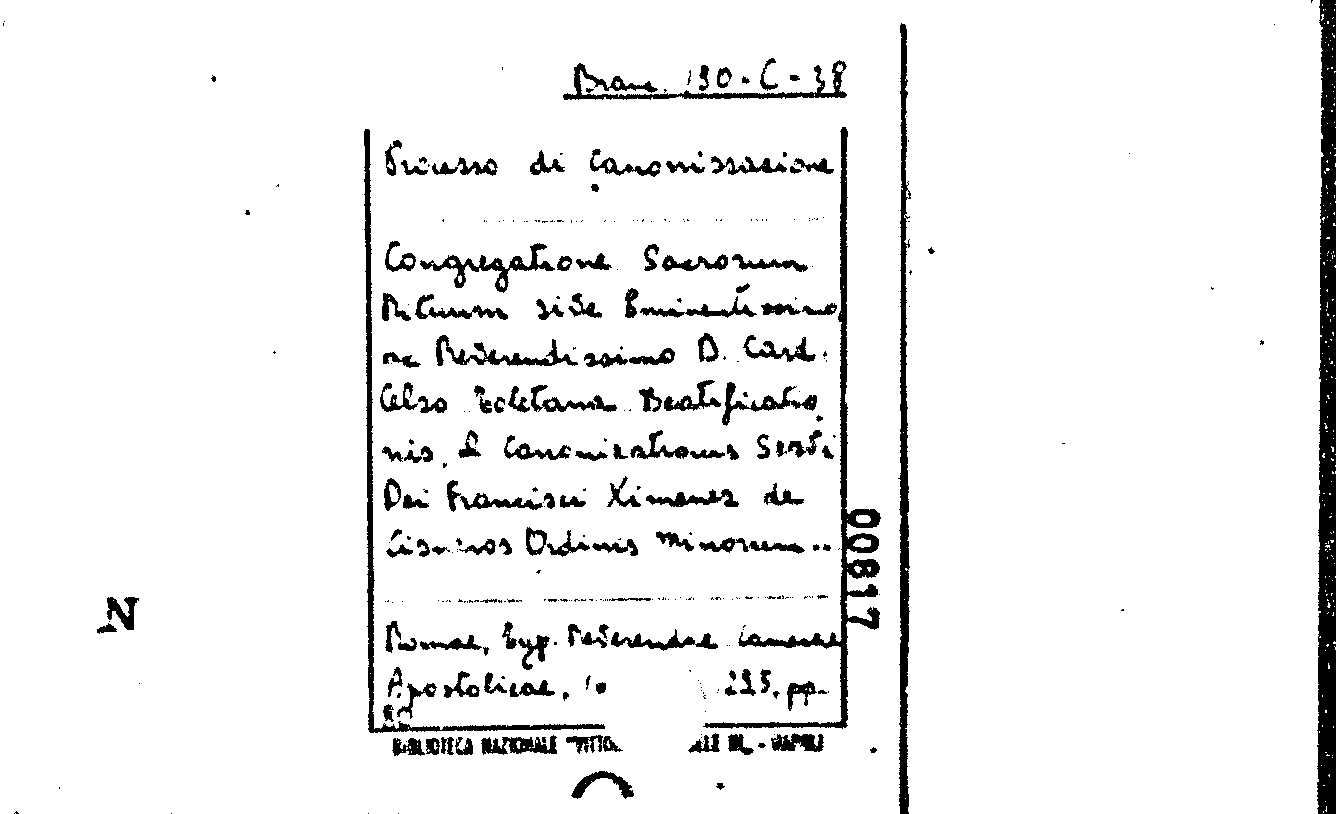 Branc. 130-C-38
Processo di Canonizzazione
Congregatione Sacrorum
Rituum sive Eminentissimo
ac Reverendissimo D. Card.
Celso Toletana Beatificatio
nis, & Canonizationis Servi
Dei Francisci Ximenez de
Cisneros Ordinis Minorum..
Romae, Typ. Reverendae Camerae
Apostolicae, 225, pp.
BIBLIOTECA NAZIONALE "VITTO ELE III" - NAPOLI
00817
N